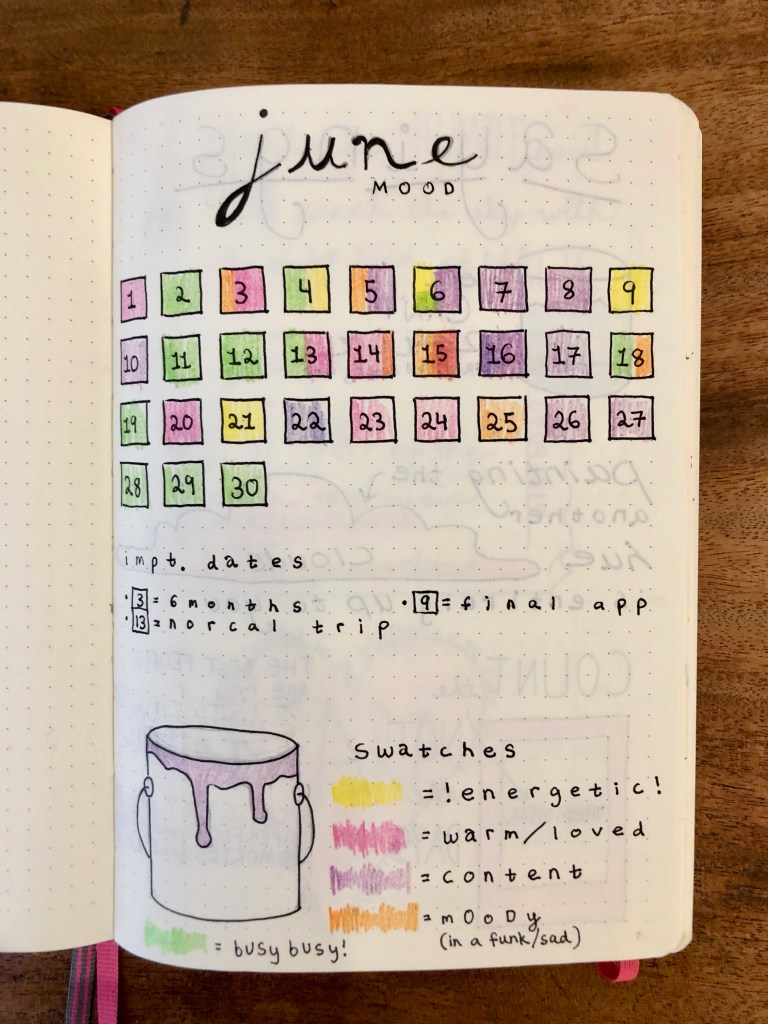 june
MOOD
1 2 3 4 5 6 7 8 9
10 11 12 13 14 15 16 17 18
19 20 21 22 23 24 25 26 27
28 29 30
impt. dates
· 3 = 6 months · 9 = final app
· 13 = norcal trip
swatches
= !energetic!
= warm/loved
= content
= mOoDy
(in a funk/sad)
= busy busy!